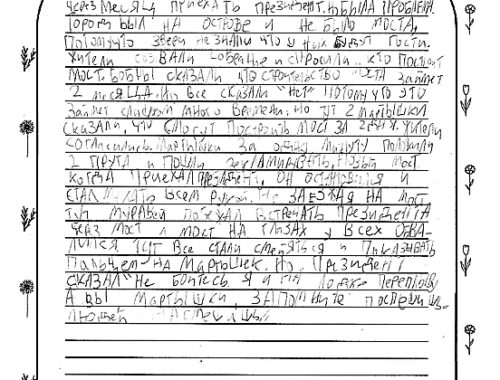 через месяц приехать президент. Но была проблема.
Город был на острове и не было моста,
потому что звери не знали что у них будут гости.
Жители созвали собрание и спросили, кто построит
мост. Бобры сказали что строительство моста займет
2 месяца. Но все сказали "нет" потому что это
займет слишком много времени. Но тут 2 мартышки
сказали, что смогут построить мост за 2 дня. Жители
согласились. Мартышки за одну минуту положили
2 прута и пошли рекламировать новый мост.
когда приехал президент, он остановился и
стал махать всем рукой. Не заезжая на мост
тут муравей поехал встречать президента
через мост и мост на глазах у всех обва-
лился тут все стали смеяться и показывать
пальцем на мартышек. Но президент
сказал "Не бойтесь я и на лодке переплыву
А вы мартышки, запомните поспешишь-
людей насмешишь